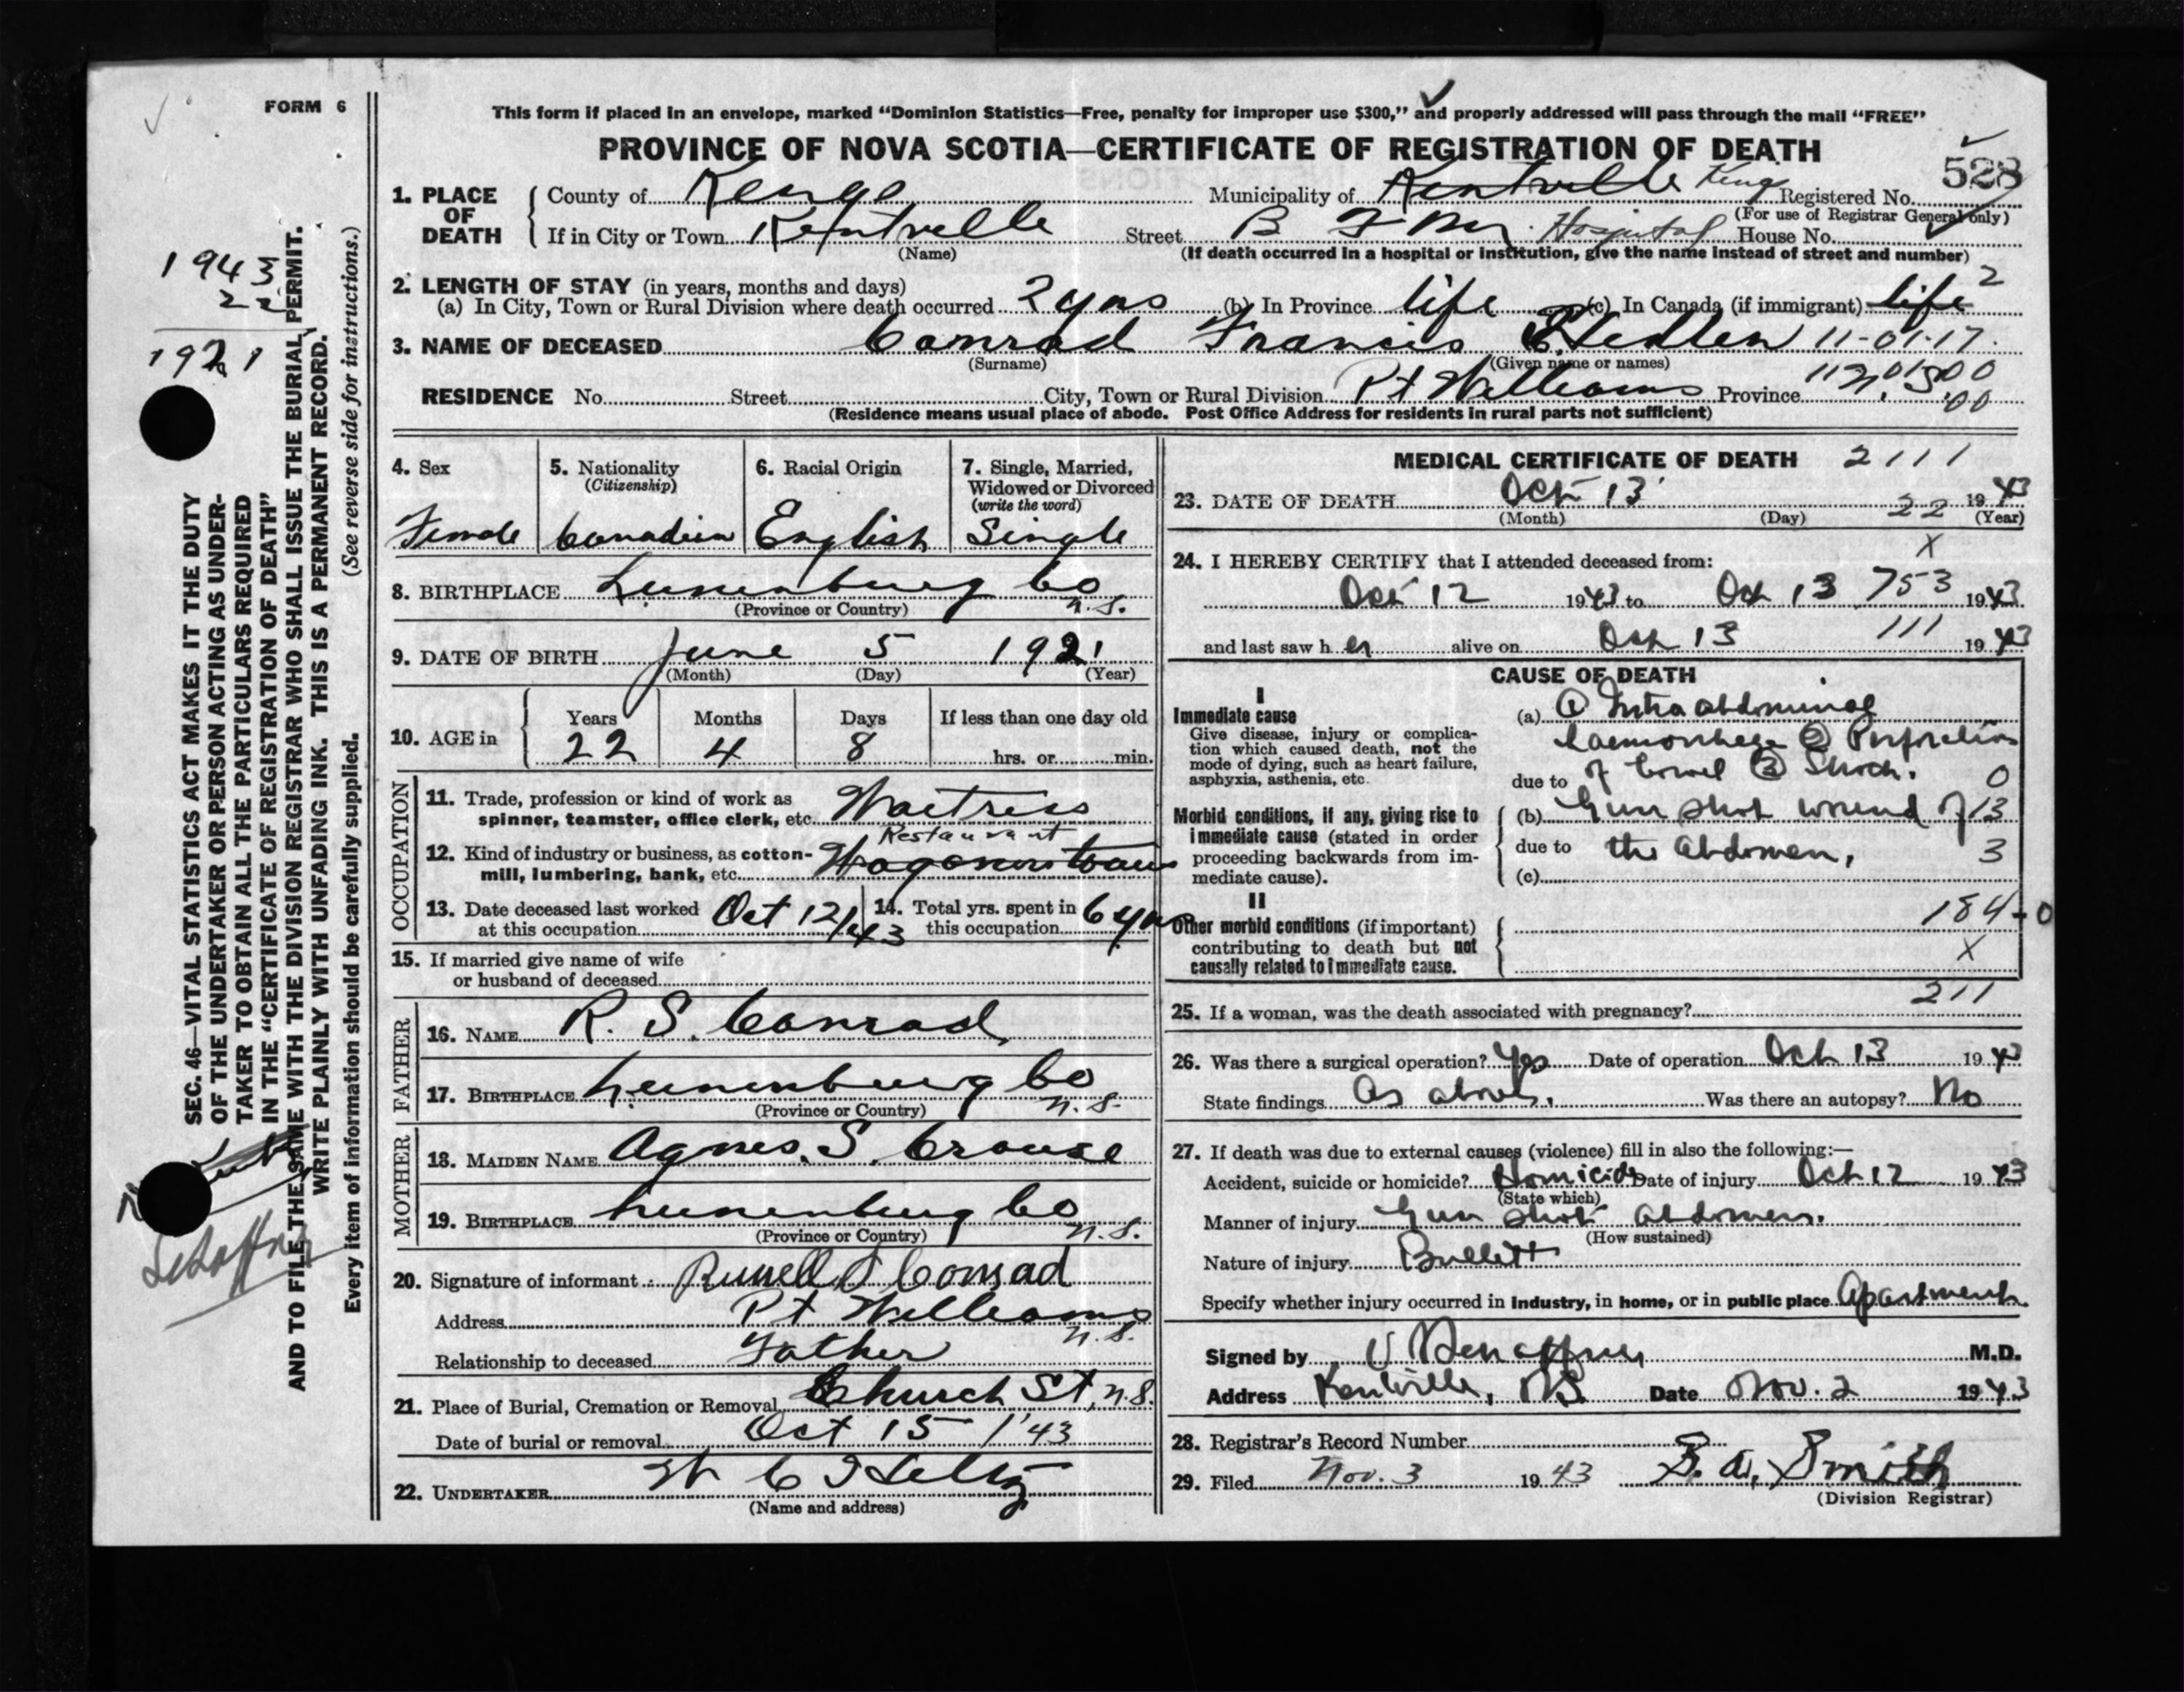 FORM 6
This form if placed in an envelope, marked "Dominion Statistics—Free, penalty for improper use $300," and properly addressed will pass through the mail "FREE"
PROVINCE OF NOVA SCOTIA—CERTIFICATE OF REGISTRATION OF DEATH
528
1. PLACE OF DEATH
County of Kings Municipality of Kentville Kings Registered No.
(For use of Registrar General only)
If in City or Town Kentville Street B F M Hospital House No.
(Name) (If death occurred in a hospital or institution, give the name instead of street and number)
2. LENGTH OF STAY (in years, months and days)
(a) In City, Town or Rural Division where death occurred 2 yrs (b) In Province life (c) In Canada (if immigrant) life 2
3. NAME OF DECEASED Conrad Francis 11-01-17.
(Surname) (Given name or names)
RESIDENCE No. Street City, Town or Rural Division Pt Williams Province
(Residence means usual place of abode. Post Office Address for residents in rural parts not sufficient)
4. Sex
Female
5. Nationality
(Citizenship)
Canadian
6. Racial Origin
English
7. Single, Married,
Widowed or Divorced
(write the word)
Single
8. BIRTHPLACE Lunenburg Co
(Province or Country) N.S.
9. DATE OF BIRTH June 5 1921
(Month) (Day) (Year)
10. AGE in
Years Months Days If less than one day old
22 4 8 hrs. or min.
OCCUPATION
11. Trade, profession or kind of work as
spinner, teamster, office clerk, etc. Waitress
Restaurant
12. Kind of industry or business, as cotton-
mill, lumbering, bank, etc.
13. Date deceased last worked
at this occupation Oct 12/43
14. Total yrs. spent in
this occupation 6 yrs
15. If married give name of wife
or husband of deceased
FATHER
16. NAME R. S. Conrad
17. BIRTHPLACE Lunenburg Co
(Province or Country) N.S.
MOTHER
18. MAIDEN NAME Agnes. S. Crouse
19. BIRTHPLACE Lunenburg Co
(Province or Country) N.S.
20. Signature of informant Russell S Conrad
Address Pt Williams
N.S.
Relationship to deceased Father
21. Place of Burial, Cremation or Removal Church St, N.S.
Date of burial or removal Oct 15 / '43
22. UNDERTAKER W C
(Name and address)
MEDICAL CERTIFICATE OF DEATH 2111
23. DATE OF DEATH Oct 13 22 1943
(Month) (Day) (Year)
24. I HEREBY CERTIFY that I attended deceased from: X
Oct 12 1943 to Oct 13 753 1943
111
and last saw h er alive on Oct 13 1943
CAUSE OF DEATH
I
Immediate cause
Give disease, injury or complica-
tion which caused death, not the
mode of dying, such as heart failure,
asphyxia, asthenia, etc.
(a) ① Intra abdominal
haemorrhage ② Perforation
due to of bowel ③ Shock. 0
Morbid conditions, if any, giving rise to
immediate cause (stated in order
proceeding backwards from im-
mediate cause).
(b) Gun shot wound of 13
due to the abdomen, 3
(c)
II
Other morbid conditions (if important)
contributing to death but not
causally related to immediate cause.
184-0
X
211
25. If a woman, was the death associated with pregnancy?
26. Was there a surgical operation? Yes Date of operation Oct 13 1943
State findings As above. Was there an autopsy? No
27. If death was due to external causes (violence) fill in also the following:—
Accident, suicide or homicide? Homicide Date of injury Oct 12 1943
(State which)
Manner of injury Gun shot abdomen.
(How sustained)
Nature of injury Bullett
Specify whether injury occurred in industry, in home, or in public place Apartment
Signed by M.D.
Address Kentville, NS Date Nov. 2 1943
28. Registrar's Record Number
29. Filed Nov. 3 1943 B. A. Smith
(Division Registrar)
1943
22
1921
SEC. 46—VITAL STATISTICS ACT MAKES IT THE DUTY
OF THE UNDERTAKER OR PERSON ACTING AS UNDER-
TAKER TO OBTAIN ALL THE PARTICULARS REQUIRED
IN THE "CERTIFICATE OF REGISTRATION OF DEATH"
AND TO FILE THE SAME WITH THE DIVISION REGISTRAR WHO SHALL ISSUE THE BURIAL PERMIT.
WRITE PLAINLY WITH UNFADING INK. THIS IS A PERMANENT RECORD.
Every item of information should be carefully supplied. (See reverse side for instructions.)